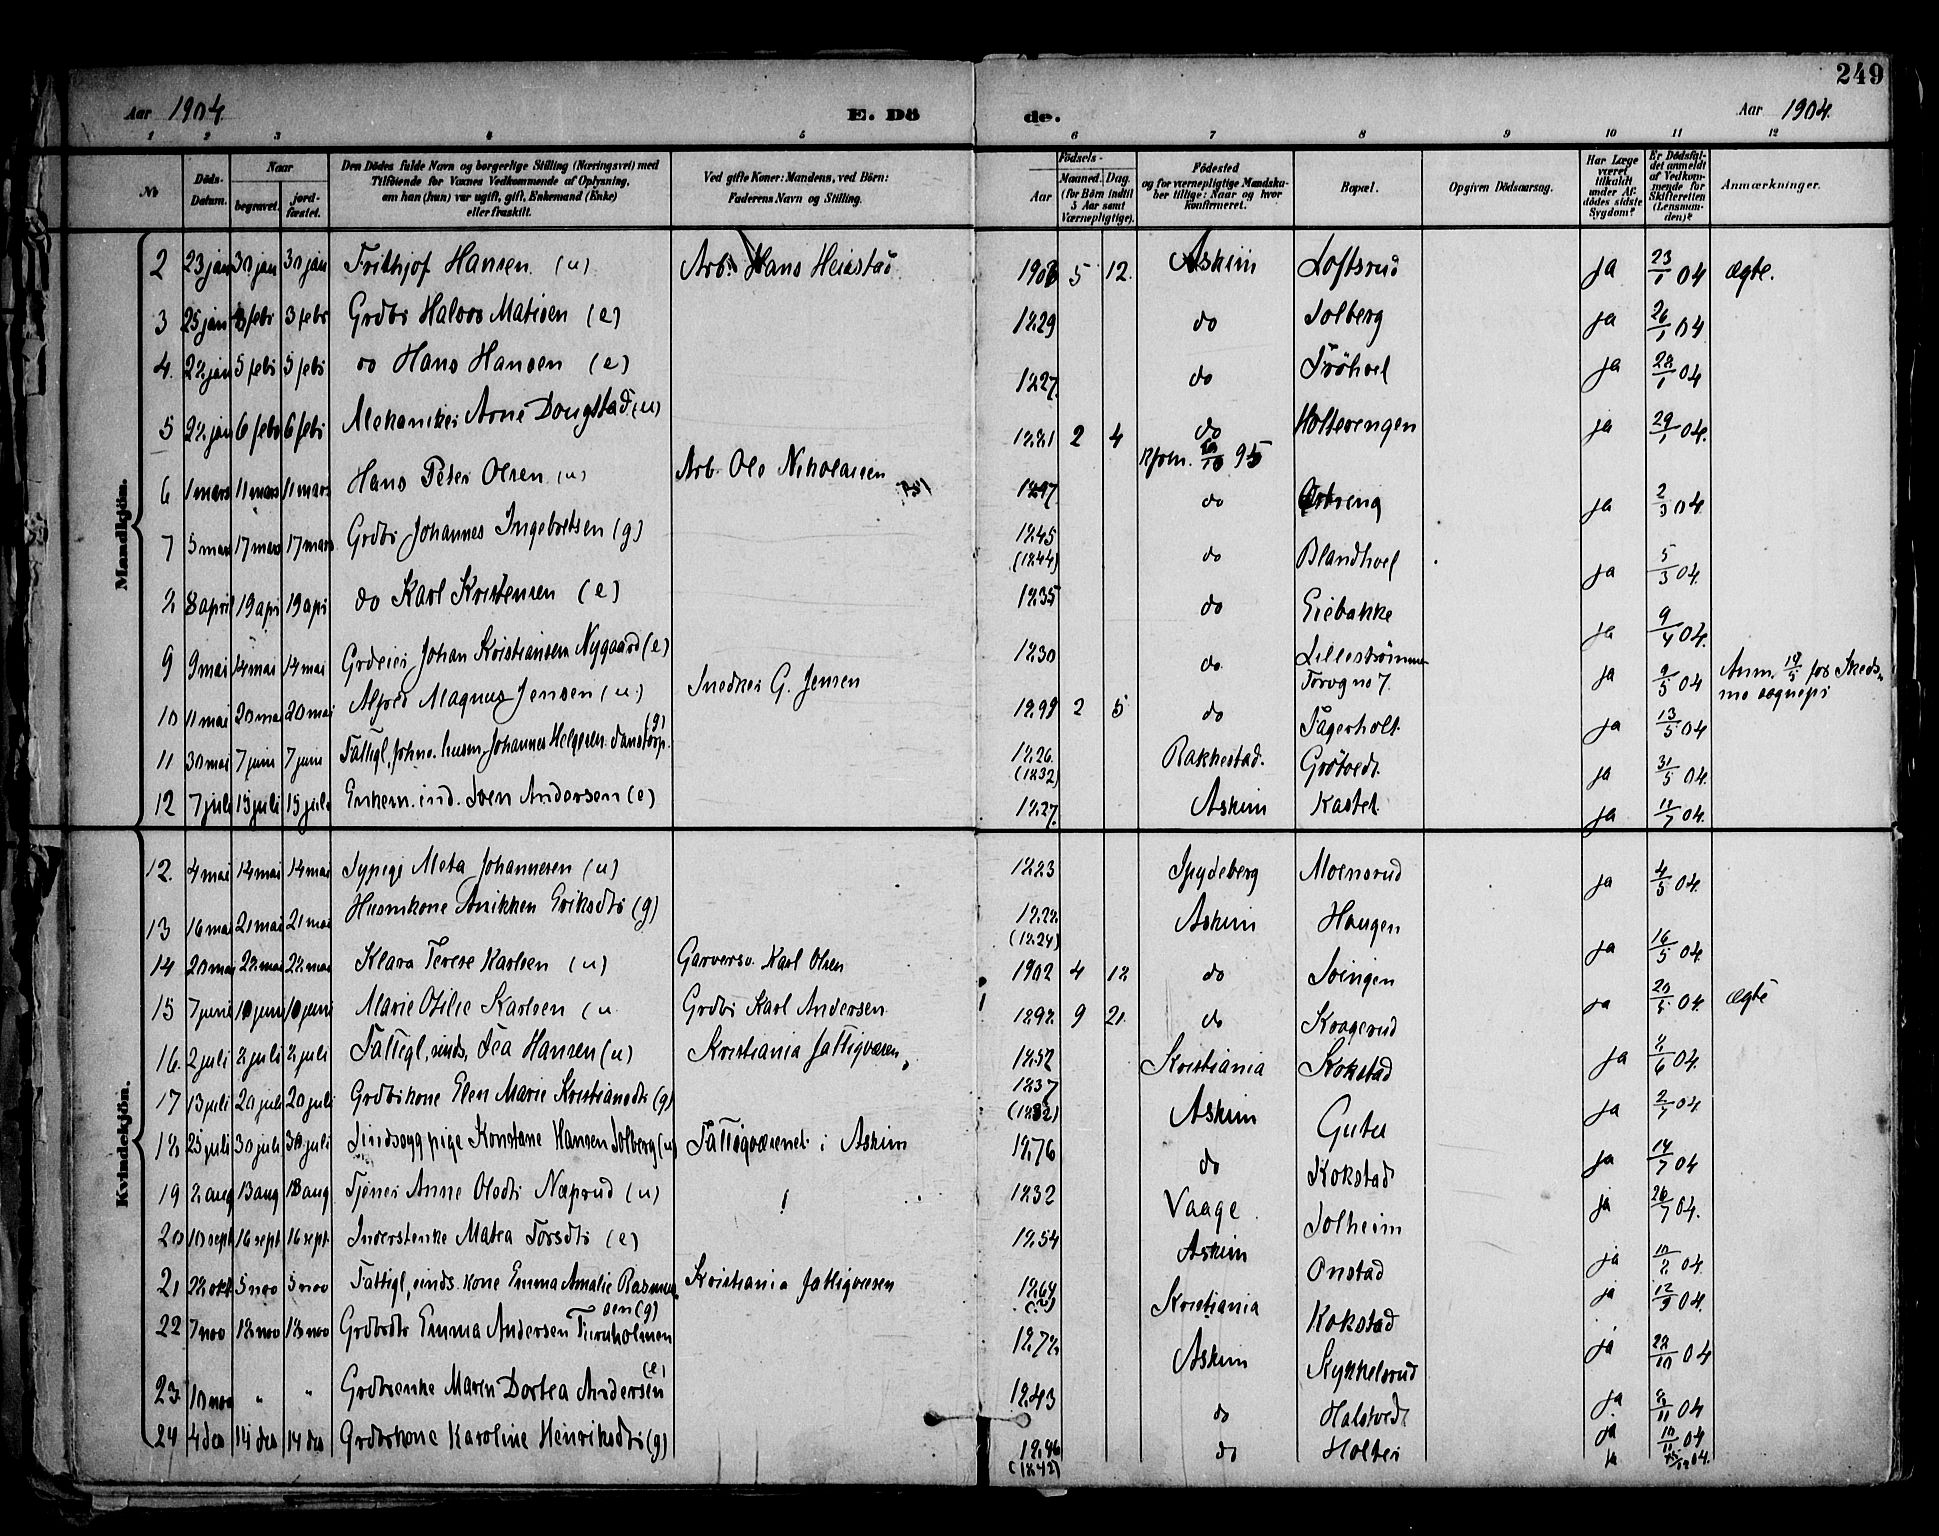 249
Aar 1904. E. Dö de. Aar 1904.
1 2 3 4 5 6 7 8 9 10 11 12
No Døds-Datum. Naar begravet. jordfæstet. Den Dödes fulde Navn og borgerlige Stilling (Næringsvei) med Tilföiende for Voxnes Vedkommende af Oplysning, om han (hun) var ugift, gift, Enkemand (Enke) eller fraskilt. Ved gifte Koner: Mandens, ved Börn: Faderens Navn og Stilling. Födsels- Aar Maaned. Dag. (for Börn indtil 5 Aar samt Værnepligtige). Födested og for værnepligtige Mandskaber tillige: Naar og hvor Konfirmeret. Bopæl. Opgiven Dödsaarsag. Har Læge været tilkaldt under Afdödes sidste Sygdom? Er Dödsfaldet anmeldt af Vedkommende for Skifteretten (Lensmanden)? Anmærkninger.
Mandkjön.
2 23 jan 30 jan 30 jan Frithjof Hansen (u) Arb. Hans Heiastad 1903 5 12. Askim Loftsrud ja 23/1 04 ægte.
3 25 jan 3 febr 3 febr Grdbr Halvor Matisen (e) 1829 do Solberg ja 26/1 04
4. 28 jan 5 febr 5 febr do Hans Hansen (e) 1827. do Tröhvel ja 28/1 04
5 28 jan 6 febr 6 febr Mekaniker Arne Dougstad (u) 1881 2 4 do Kfrm. /10 95 Holterengen ja 29/1 04.
6 1 mars 11 mars 11 mars Hans Peter Olsen (u) Arb. Ole Nikolaisen 1897 do ja 2/3 04
7 5 mars 17 mars 17 mars Grdbr Johannes Ingebretsen (g) 1845 (1844) do Blandhvel ja 5/3 04.
8 8 april 19 apr 19 apr do Karl Kristensen (e) 1835 do Giebakke ja 9/4 04.
9 9 mai 14 mai 14 mai Grdeier Johan Kristiansen Nygaard (e) 1830 do. Lillestrømmen Torvg no 7. ja 9/5 04 Anm. /5 for Skedsmo sognepr
10 11 mai 20 mai 20 mai Alfred Magnus Jensen (u.) Snedker G. Jensen 1899 2 5 do Fagerholt. ja 13/5 04
11 30 mai 7 juni 7 juni Fattigl, Johannes Helgesen (g) 1826. (1832) Rakkestad. Grötvedt. ja 31/5 04.
12 7 juli 15 juli 15 juli Enkem. ind. Sven Andersen (e) 1827. Askim Kastet ja /7 04.
Kvindekjön.
12. 4 mai 14 mai 14 mai Sypige Meta Johannesen (u) 1823 Spydeberg Moensrud ja 4/5 04.
13 16 mai 21 mai 21 mai Husmkone Anikken Eriksdtr (g) 1828. (1824) Askim Haugen ja 16/5 04.
14 20 mai 28 mai 28 mai Klara Terese Karlsen (u) Garversv. Karl Olsen 1902 4 12 do Svingen ja 20/5 04. ægte
15 7 juni 10 juni 10 juni Marie Otilie Karlsen (u Grdbr Karl Andersen 1892. 9 21. do Kragerud ja 04.
16. 2 juli 2 juli 2 juli Fattigl, sinds, Tea Hansen (u) Kristiania fattigvæsen, 1852 Kristiania Kokstad ja 04
17 13 juli 20 juli 20 juli Grdbrkone Elen Marie Kristiansdtr (g) 1837 (1832) Askim Guter ja 04
18. 25 juli 30 juli 30 juli Sindssyg pige Konstanse Hansen Solberg (u) Fattigvæsenet i Askim 1876 do Kokstad ja 14/7 04
19 2 aug 13 aug 13 aug Tjener Anne Olsdtr Næprud (u) 1832 Vaage Solheim ja 26/7 04.
20 10 sept 16 sept. 16 sept. Inderstenke Matea Torsdtr (e) 1854 Askim Onstad ja 04.
21 22 okt 5 nov 5 nov Fattigl, sinds. kone Emma Amalie Rasmussen (g) Kristiania fattigvæsen 1864 (?) Kristiania Kokstad ja 12/9 04.
22 7 nov 12 nov 12 nov Grdbrdtr Emma Andersen Furuholmen 1872. Askim Kykkelsrud ja 22/10 04
23. 10 nov " " Grdbrenke Maren Dortea Andersen (e) 1843 do Halstvedt ja 8/11 04
24 4 des 14 des 14 des Grdbrkone Karoline Henriksdtr (g) 1846 (1842) do Holter ja 10/11 04
ja 04.